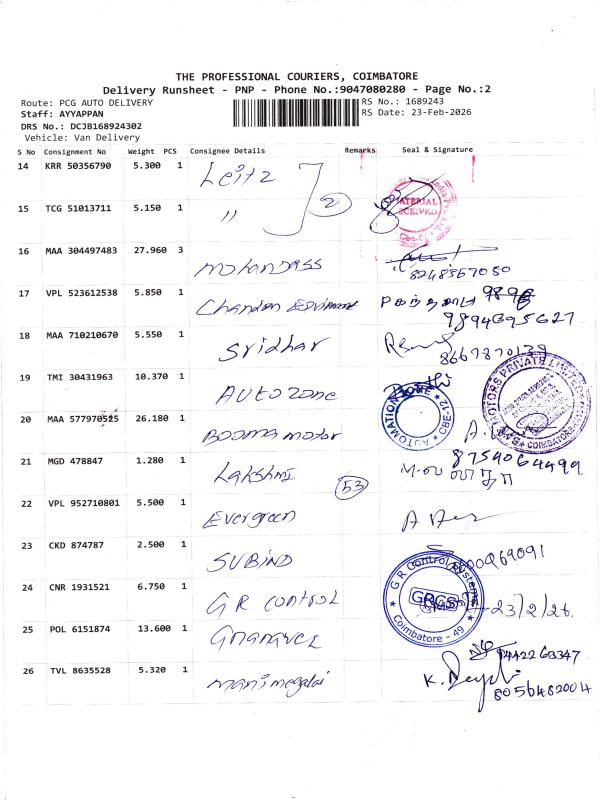 THE PROFESSIONAL COURIERS, COIMBATORE
Delivery Runsheet - PNP - Phone No.:9047080280 - Page No.:2
Route: PCG AUTO DELIVERY
RS No.: 1689243
Staff: AYYAPPAN
RS Date: 23-Feb-2026
DRS No.: DCJB168924302
Vehicle: Van Delivery
S No Consignment No Weight PCS Consignee Details Remarks Seal & Signature
14 KRR 50356790 5.300 1 Leitz
2
15 TCG 51013711 5.150 1 "
MATERIAL
RECEIVED
16 MAA 304497483 27.960 3 Mohandass
8248567050
17 VPL 523612538 5.850 1 Chandra
9894395627
18 MAA 710210670 5.550 1 Sridhar
8667870139
19 TMI 30431963 10.370 1 AUTOZONE
AUTOMATION ZONE ★ CBE-12 ★
MOTORS PRIVATE LIMITED
COIMBATORE
20 MAA 577970525 26.180 1 BOOMA motor
21 MGD 478847 1.280 1 Lakshmi
8754064499
53
22 VPL 952710801 5.500 1 Evergreen
23 CKD 874787 2.500 1 SUBIND
24 CNR 1931521 6.750 1 G R control
G R Control Systems
GRCS
Coimbatore - 49
23/2/26.
25 POL 6151874 13.600 1 Gnanavel
9442263347
26 TVL 8635528 5.320 1 Manimegalai
8056482004